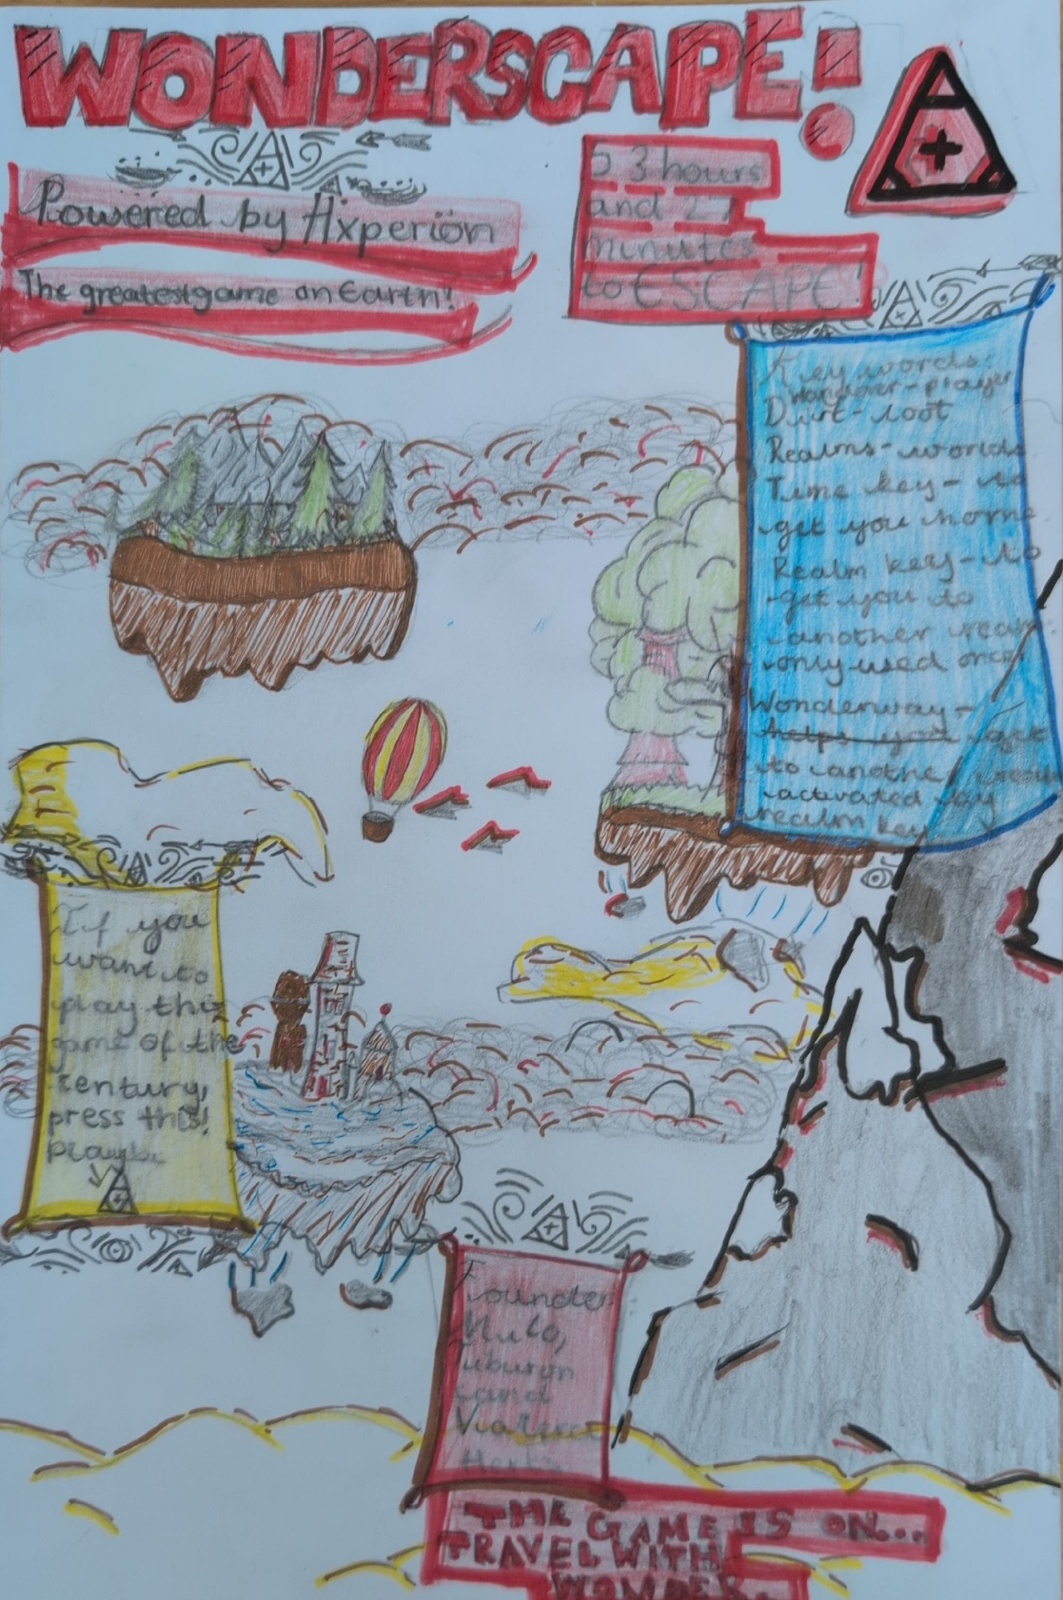 WONDERSCAPE!
Powered by Hxperion
The greatest game on Earth!
3 hours
and 27
minutes
to ESCAPE!
Key words:
Wanderer - player
Dirt - loot
Realms - worlds
Time key - to
get you home
Realm key - to
get you to
another realm
only used once
Wonderway -
helps you get
to another realm
activated by
realm key
If you
want to
play this
game of the
century,
press this!
Founder
Milo,
Tiburon
and
THE GAME IS ON...
TRAVEL WITH
WONDER.